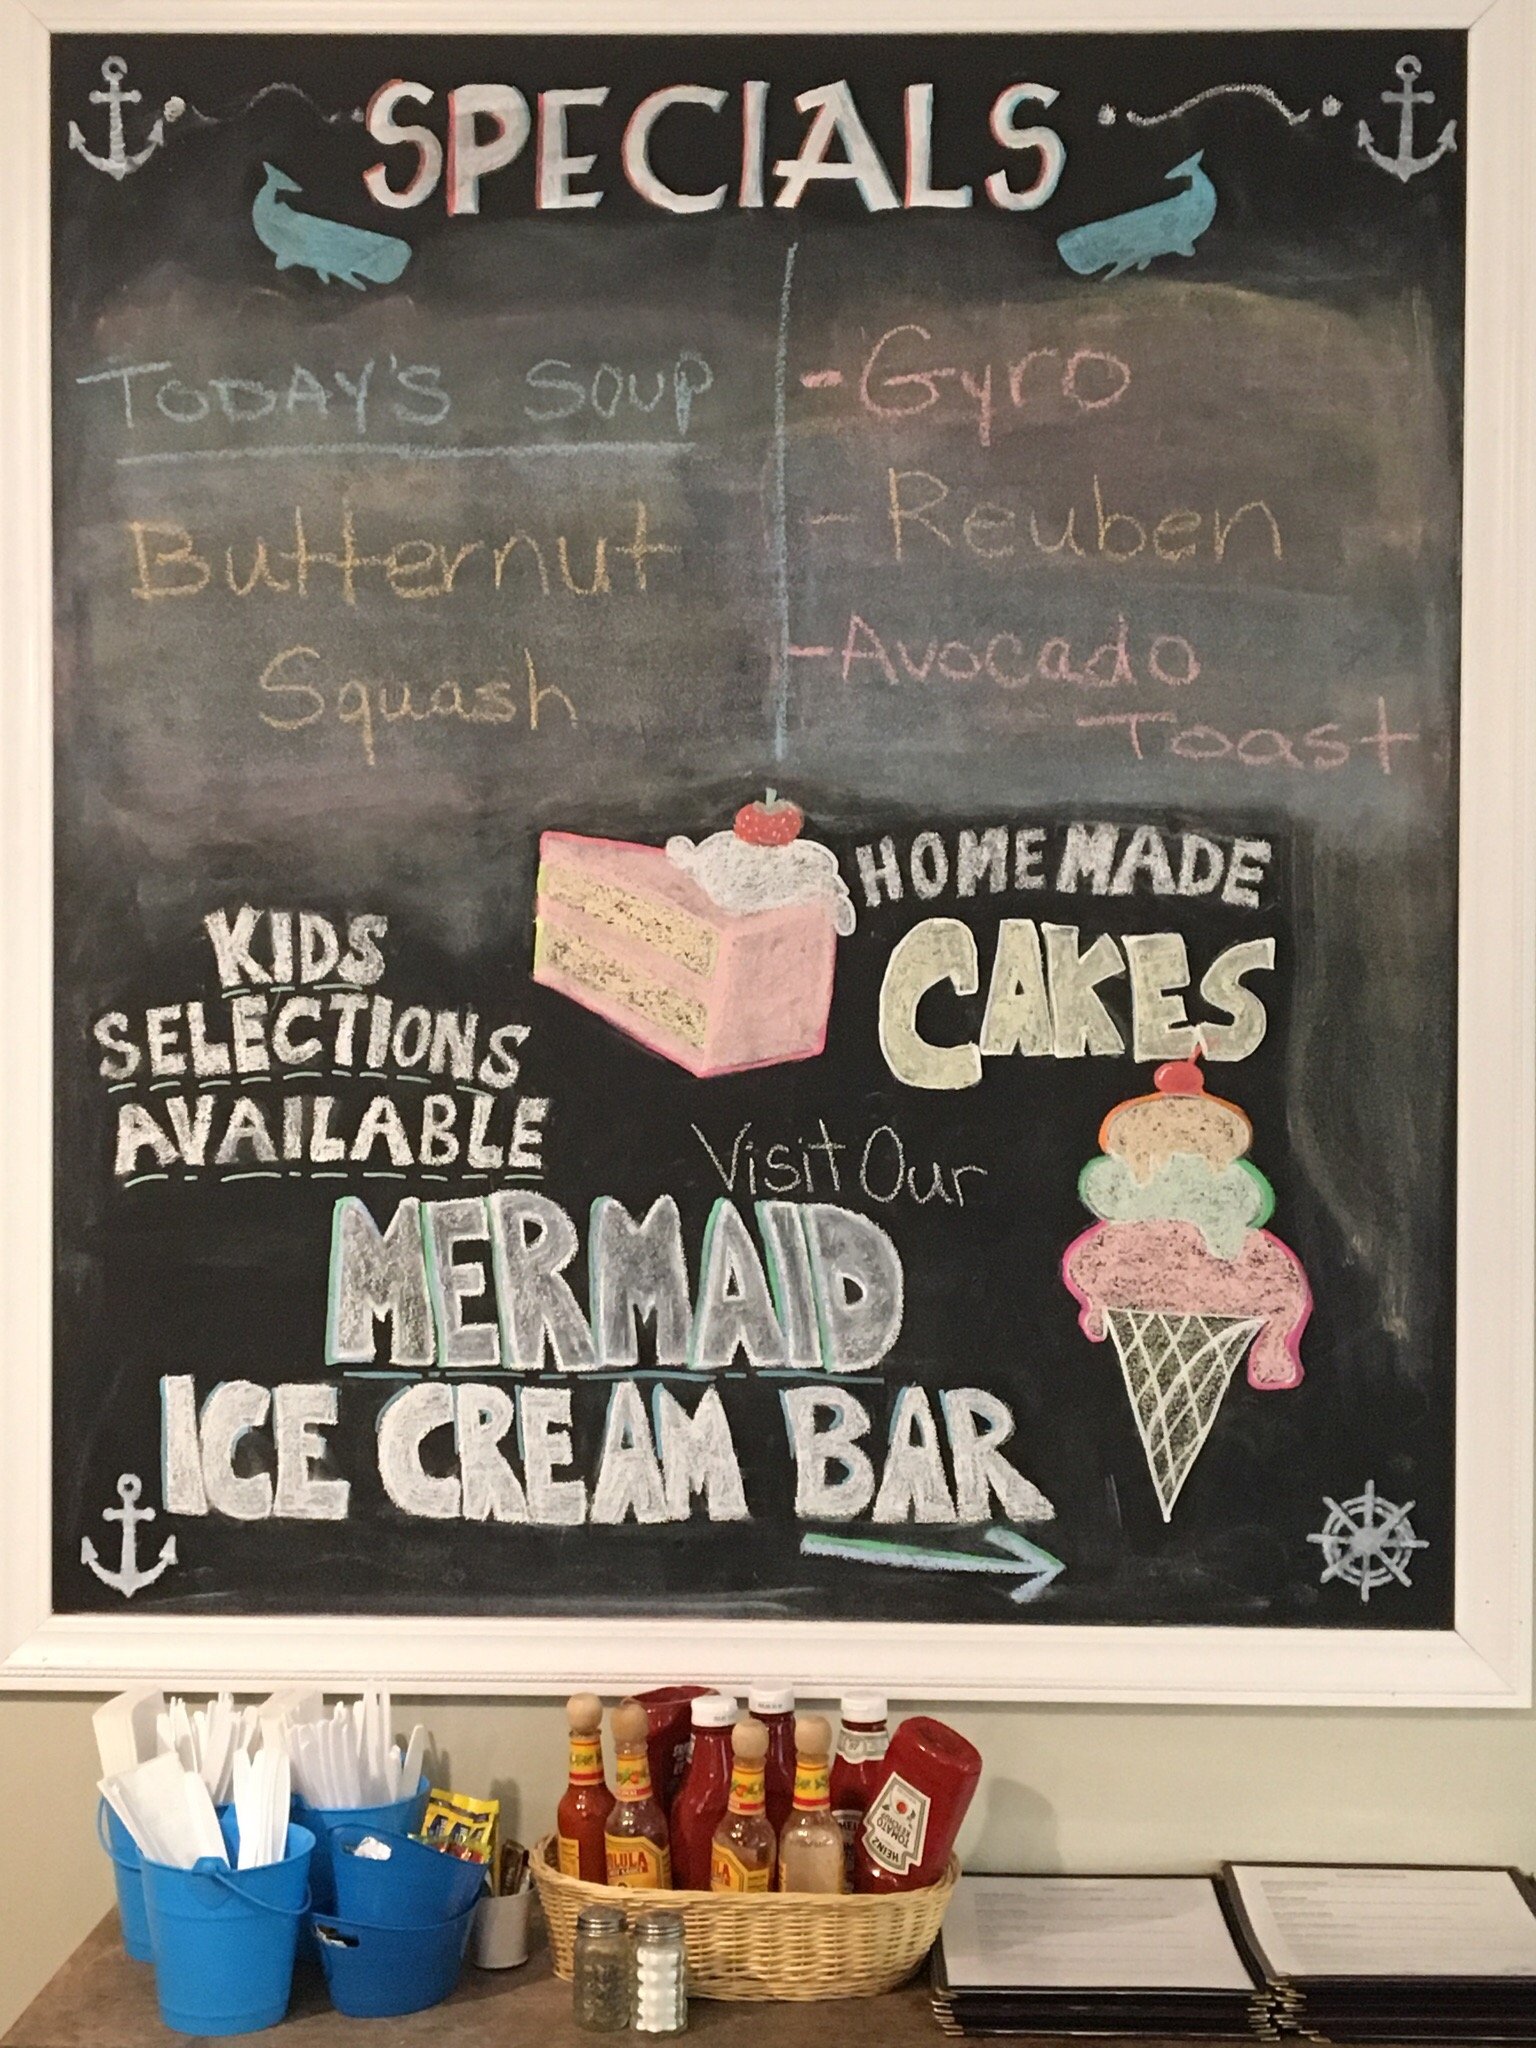 SPECIALS
TODAY'S SOUP
Butternut
Squash
-Gyro
-Reuben
-Avocado
Toast
HOMEMADE
CAKES
KIDS
SELECTIONS
AVAILABLE
Visit Our
MERMAID
ICE CREAM BAR
HEINZ
TOMATO
KETCHUP